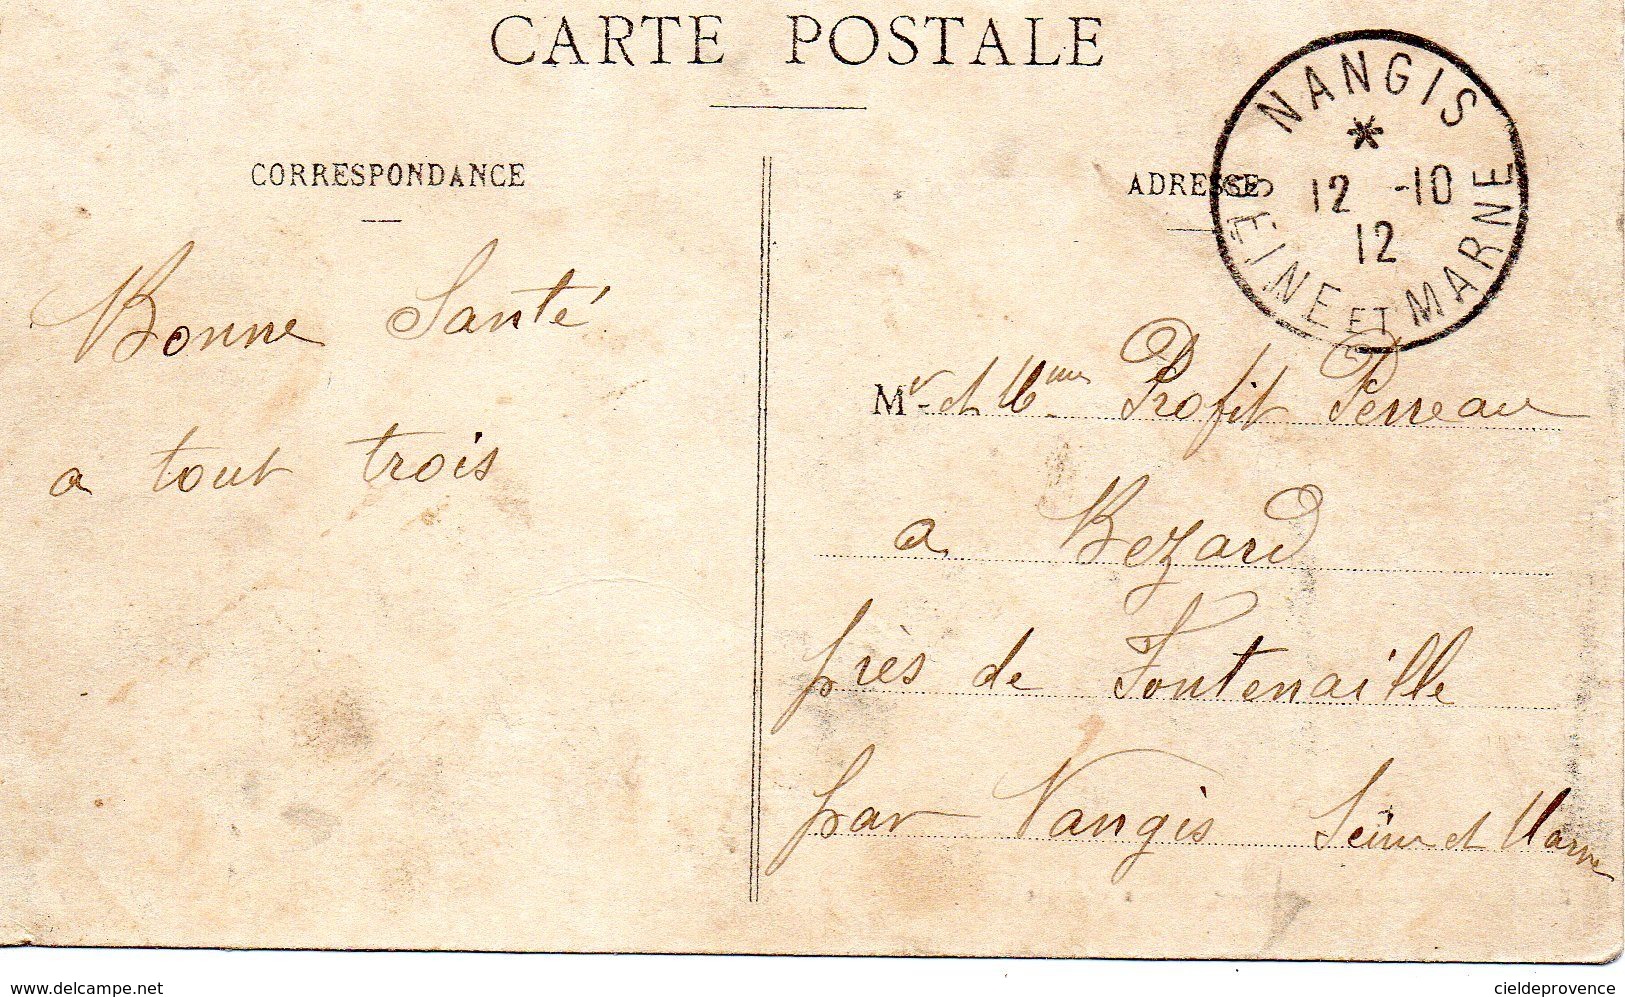 CARTE POSTALE
CORRESPONDANCE
Bonne Santé
a tout trois
ADRESSE
NANGIS
*
12 -10
12
SEINE ET MARNE
Mr et Mme Profit Perreau
a Bezard
près de Fontenaille
par Nangis Seine et Marne
www.delcampe.net
cieldeprovence